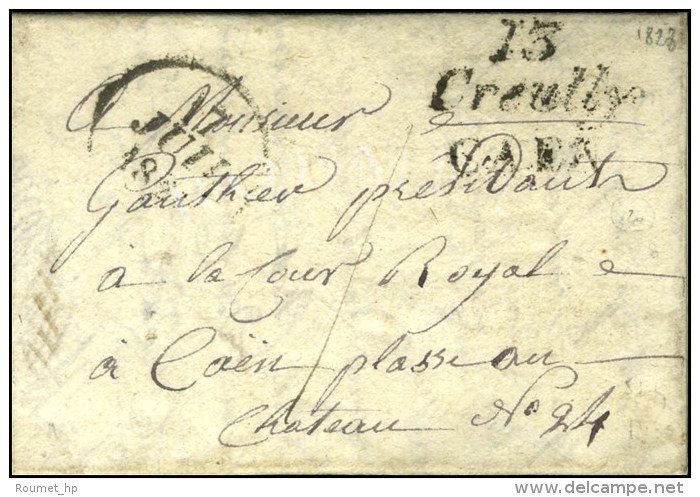 1828
13
Creully
CAEN
JUIL
A Monsieur
Gauthier presidant
à la Cour Royal e
à Caën plasse au
chateau No 24
Roumet_hp
delcampe.net